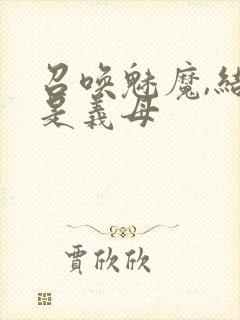 召喚魅魔,結
是義母
賈欣欣